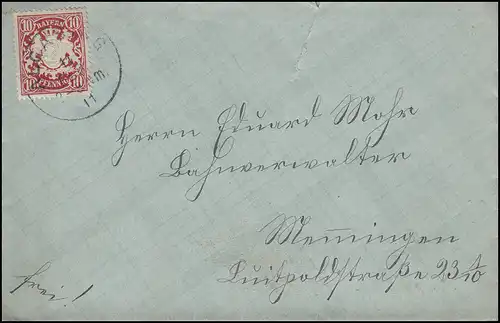 10 BAYERN 10
10 PFENNIG 10
Herrn Eduard Mohr
Bahnverwalter
Memmingen
Luitpoldstraße 23 1/0
frei!